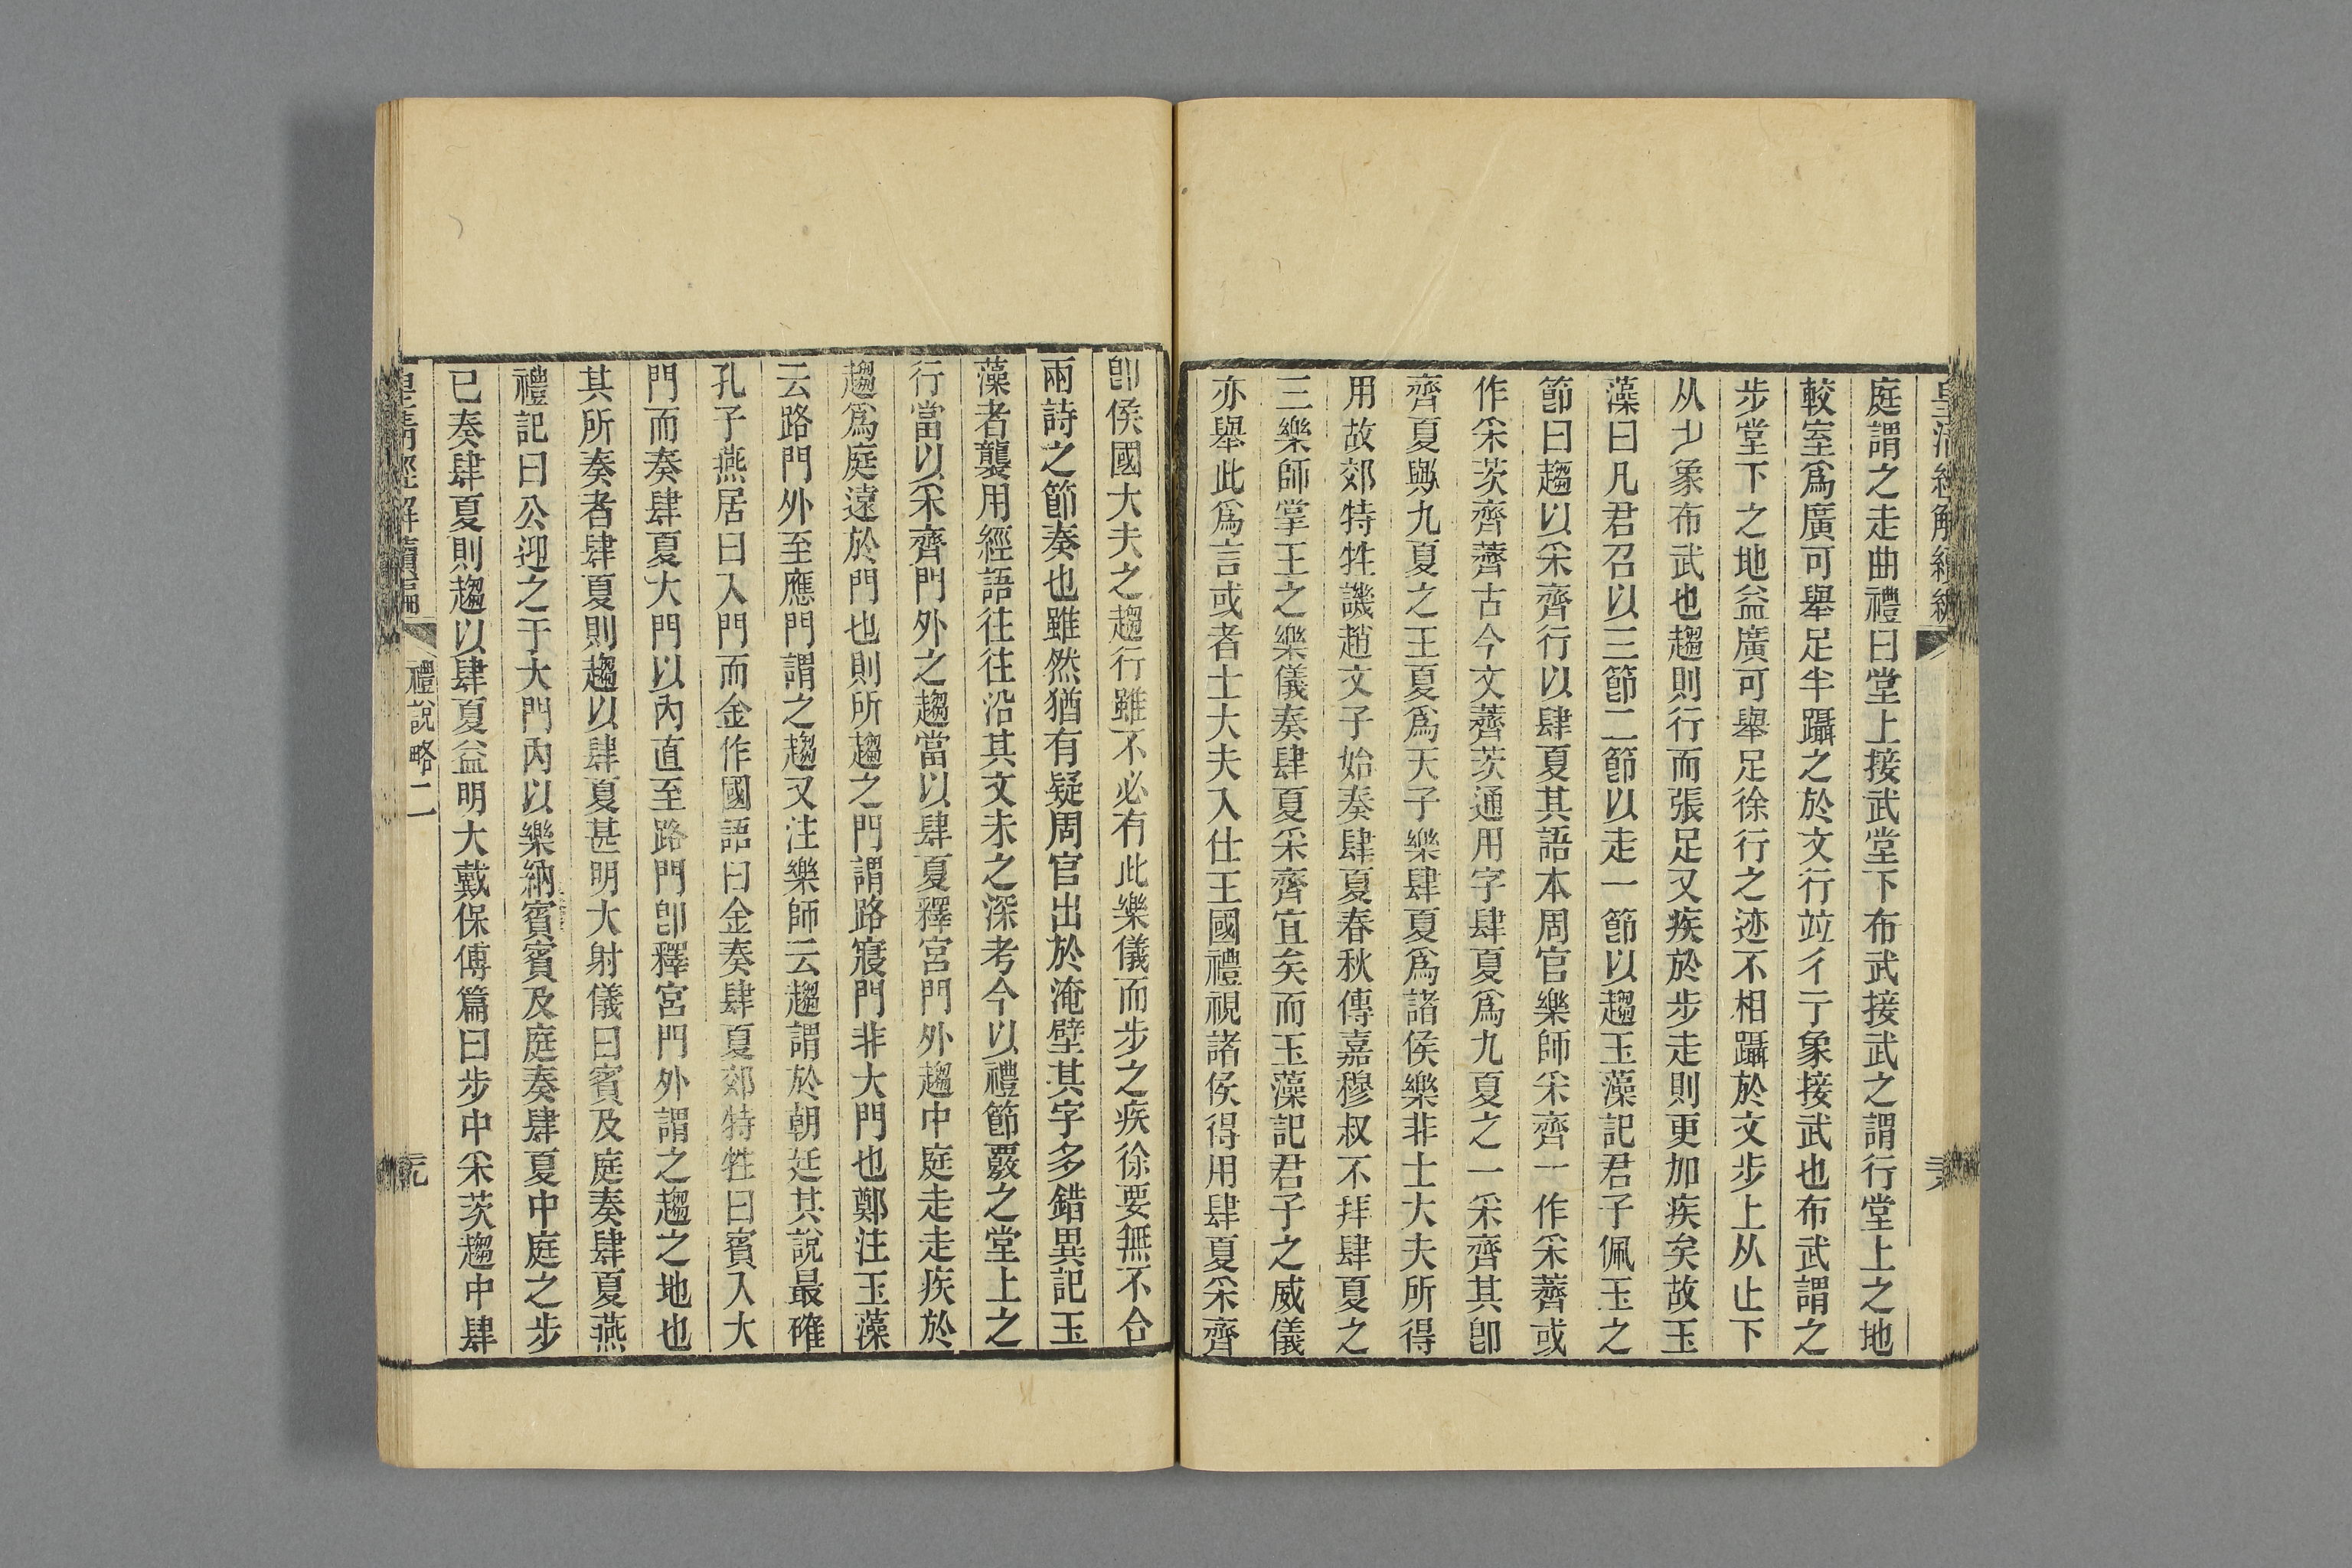 皇清經解續編
庭謂之走曲禮曰堂上接武堂下布武接武之謂行堂上之地
較室爲廣可舉足半躡之於文行竝彳亍象接武也布武謂之
步堂下之地益廣可舉足徐行之迹不相躡於文步上从止下
从象布武也趨則行而張足又疾於步走則更加疾矣故玉
藻曰凡君召以三節二節以走一節以趨玉藻記君子佩玉之
節曰趨以采齊行以肆夏其語本周官樂師采齊一作采薺或
作采茨齊薺古今文薺茨通用字肆夏爲九夏之一采齊其卽
齊夏與九夏之王夏爲天子樂肆夏爲諸侯樂非士大夫所得
用故郊特牲譏趙文子始奏肆夏春秋傳嘉穆叔不拜肆夏之
三樂師掌王之樂儀奏肆夏采齊宜矣而玉藻記君子之威儀
亦舉此爲言或者士大夫入仕王國禮視諸侯得用肆夏采齊
卽侯國大夫之趨行雖不必有此樂儀而步之疾徐要無不合
兩詩之節奏也雖然猶有疑周官出於淹壁其字多錯異記玉
藻者襲用經語往往沿其文未之深考今以禮節覈之堂上之
行當以采齊門外之趨當以肆夏釋宮門外趨中庭走走疾於
趨爲庭遠於門也則所趨之門謂路寢門非大門也鄭注玉藻
云路門外至應門謂之趨又注樂師云趨謂於朝廷其說最確
孔子燕居曰入門而金作國語曰金奏肆夏郊特牲曰賓入大
門而奏肆夏大門以內直至路門卽釋宮門外謂之趨之地也
其所奏者肆夏則趨以肆夏甚明大射儀曰賓及庭奏肆夏燕
禮記曰公迎之于大門內以樂納賓賓及庭奏肆夏中庭之步
已奏肆夏則趨以肆夏益明大戴保傅篇曰步中采茨趨中肆
皇清經解續編
禮說略二